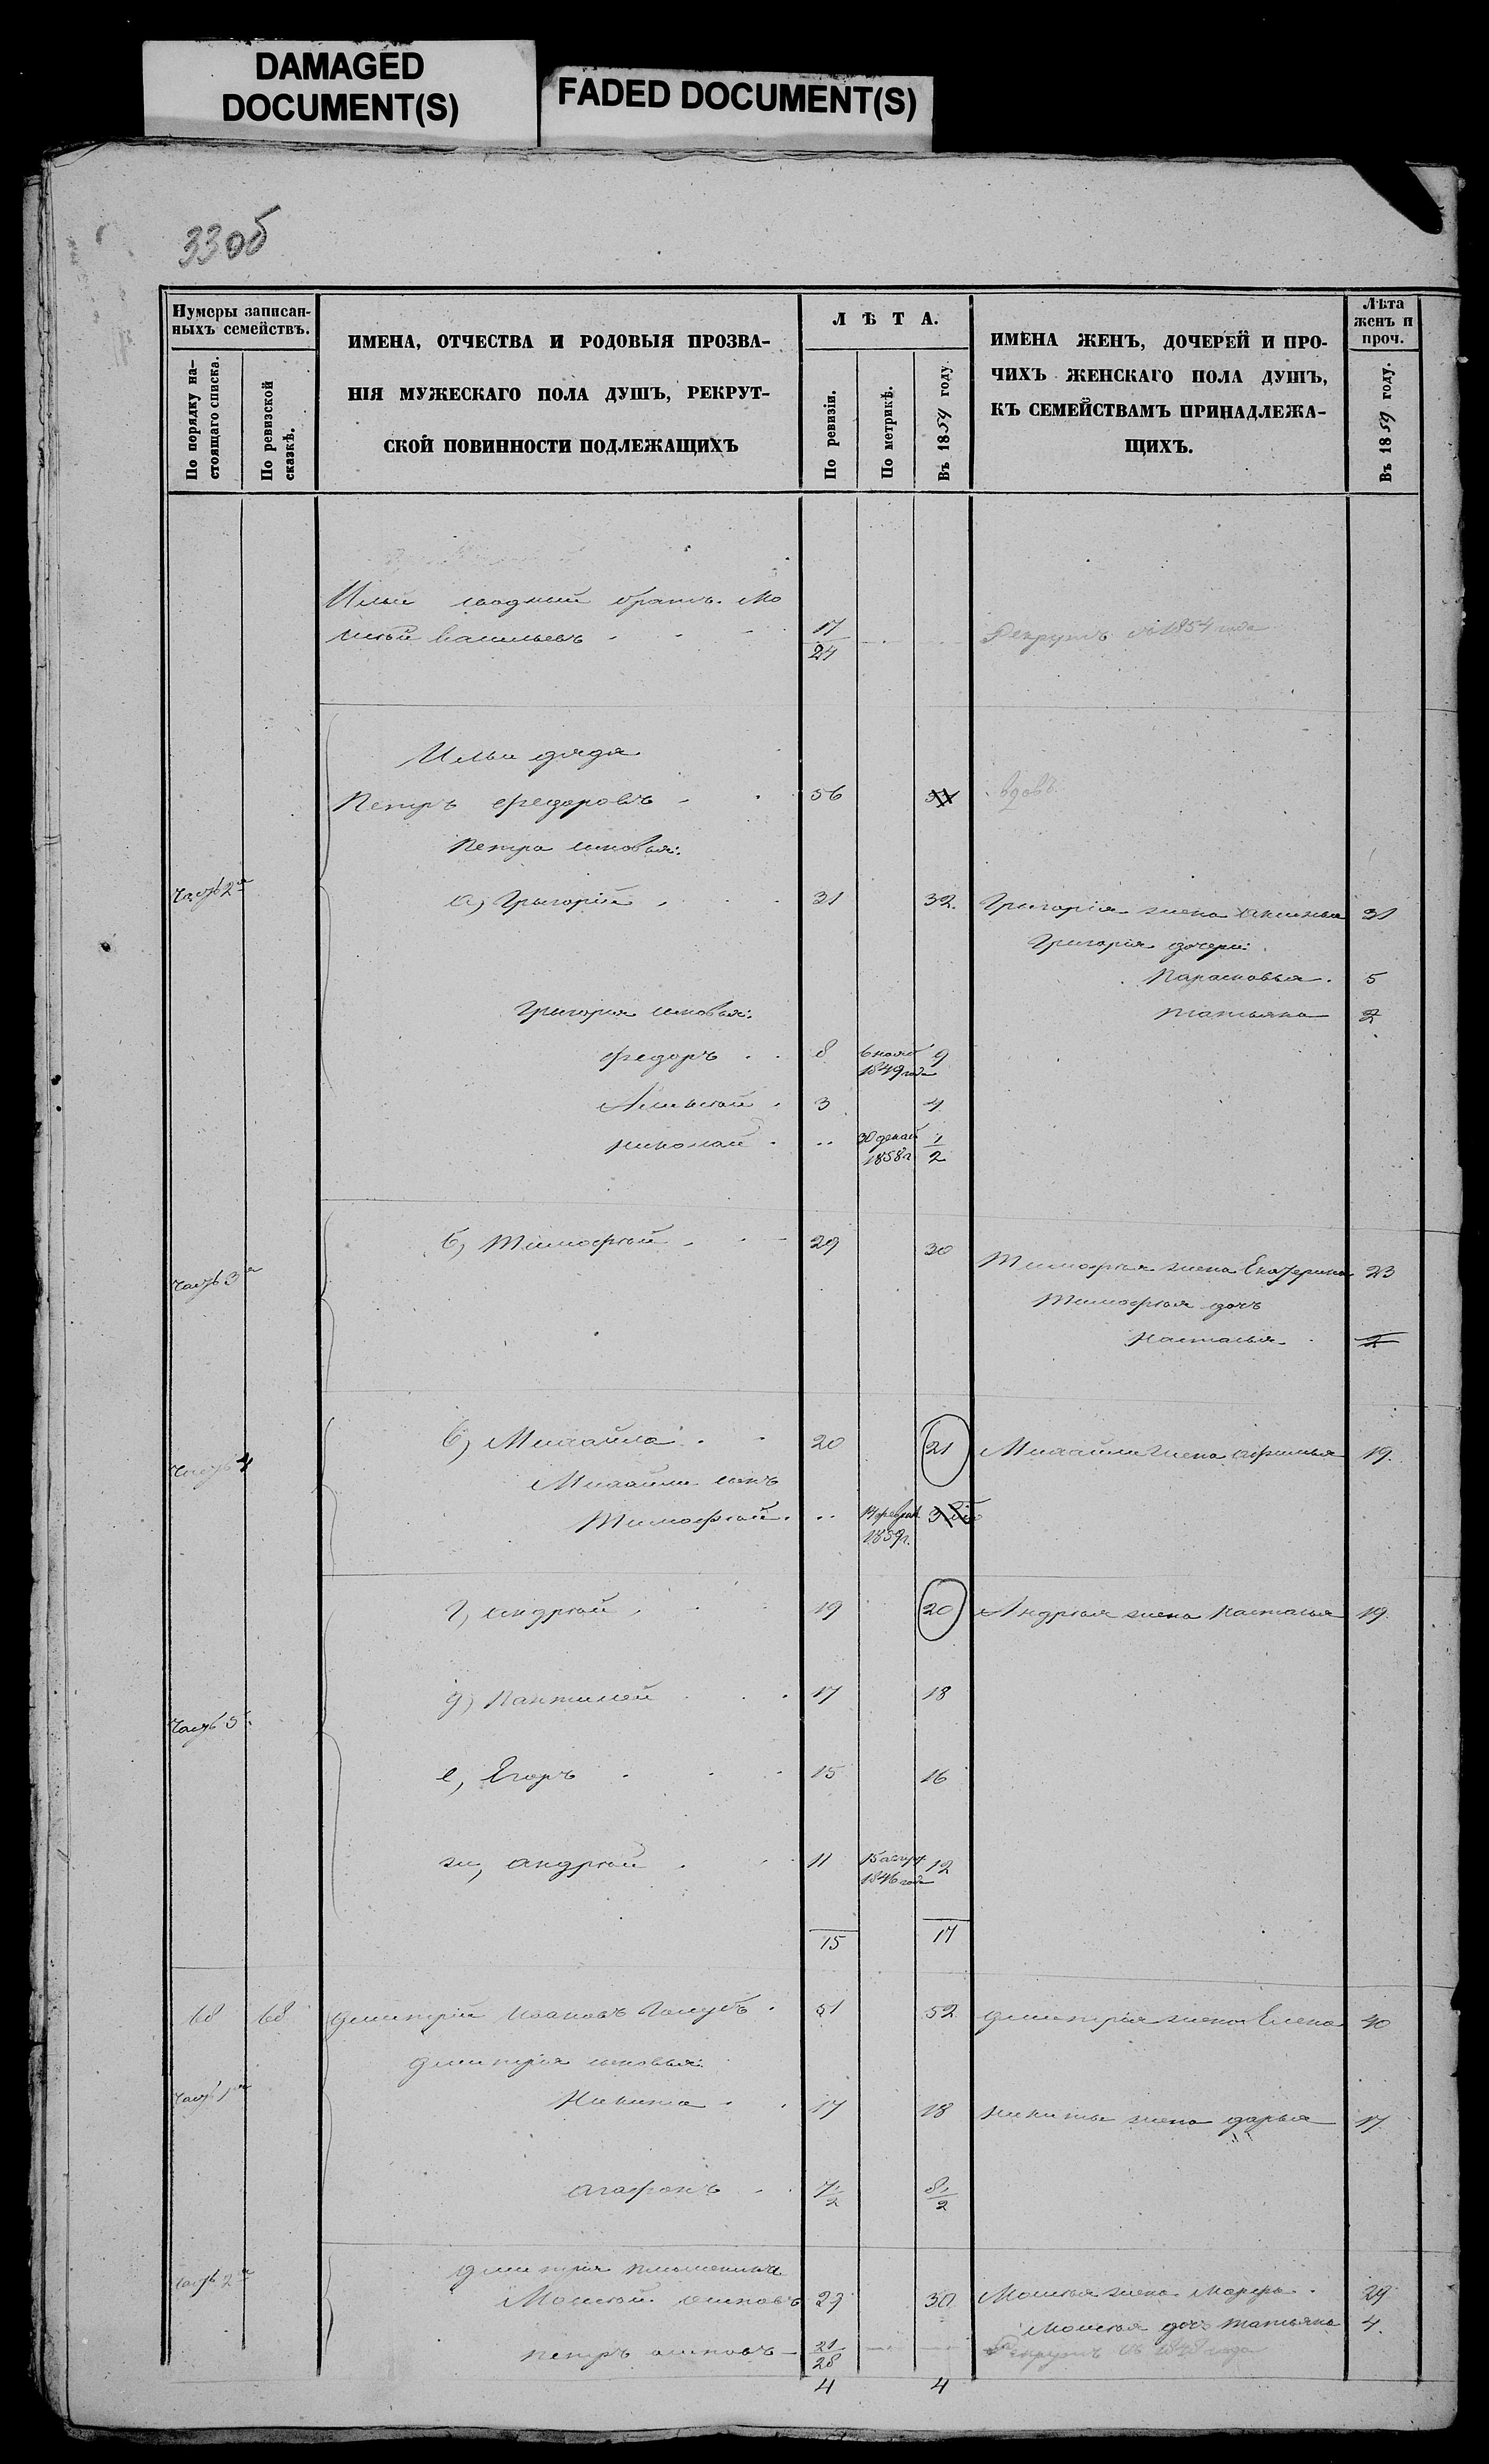 DAMAGED
DOCUMENT(S)
FADED DOCUMENT(S)
33 об
Нумеры записан-
ныхъ семействъ.
По порядку на-
стоящаго списка.
По ревизской
сказкѣ.
ИМЕНА, ОТЧЕСТВА И РОДОВЫЯ ПРОЗВА-
НІЯ МУЖЕСКАГО ПОЛА ДУШЪ, РЕКРУТ-
СКОЙ ПОВИННОСТИ ПОДЛЕЖАЩИХЪ
ЛѢТА.
По ревизіи.
По метрикѣ.
Въ 1859 году.
ИМЕНА ЖЕНЪ, ДОЧЕРЕЙ И ПРО-
ЧИХЪ ЖЕНСКАГО ПОЛА ДУШЪ,
КЪ СЕМЕЙСТВАМЪ ПРИНАДЛЕЖА-
ЩИХЪ.
Лѣта
женъ и
проч.
Въ 1859 году.
Ильи сводный братъ Мо
исей Васильевъ 17/24 Рекрутъ съ 1854 года
Ильи дядя
Петръ Федоровъ 56 вдовъ
Петра сыновья:
часть 2я а) Григорій 31 32 Григорія жена Аксинья 31
Григорія дочери:
Парасковья 5
Григорія сыновья: Татьяна 2
Федоръ 8 6 нояб 1849 года 9
Алексѣй 3 4
Николай 30 декаб 1858 г 1/2
часть 3я б) Тимофѣй 29 30 Тимофѣя жена Екатерина 23
Тимофѣя дочь
Настасья 2
часть 4 в) Михайла 20 21 Михайлы жена Афимья 19
Михайлы сынъ
Тимофѣй 14 феврал 1859 г.
г) Андрѣй 19 20 Андрѣя жена Настасья 19
д) Пантилей 17 18
часть 5
е) Егоръ 15 16
ж) Андрѣй 11 15 август 1846 года 12
15 17
68 68 Дмитрій Ивановъ Голубъ 51 52 Дмитрія жена Елена 40
Дмитрія сыновья:
часть 1я Никита 17 18 Никиты жена Дарья 17
Агафонъ 7 1/2 8 1/2
часть 2я Дмитрія племянники
Моисей Осиповъ 29 30 Моисея жена Марфа 29
Моисея дочь Татьяна 4
Петръ Осиповъ 21/28 Рекрутъ съ 1848 года
4 4